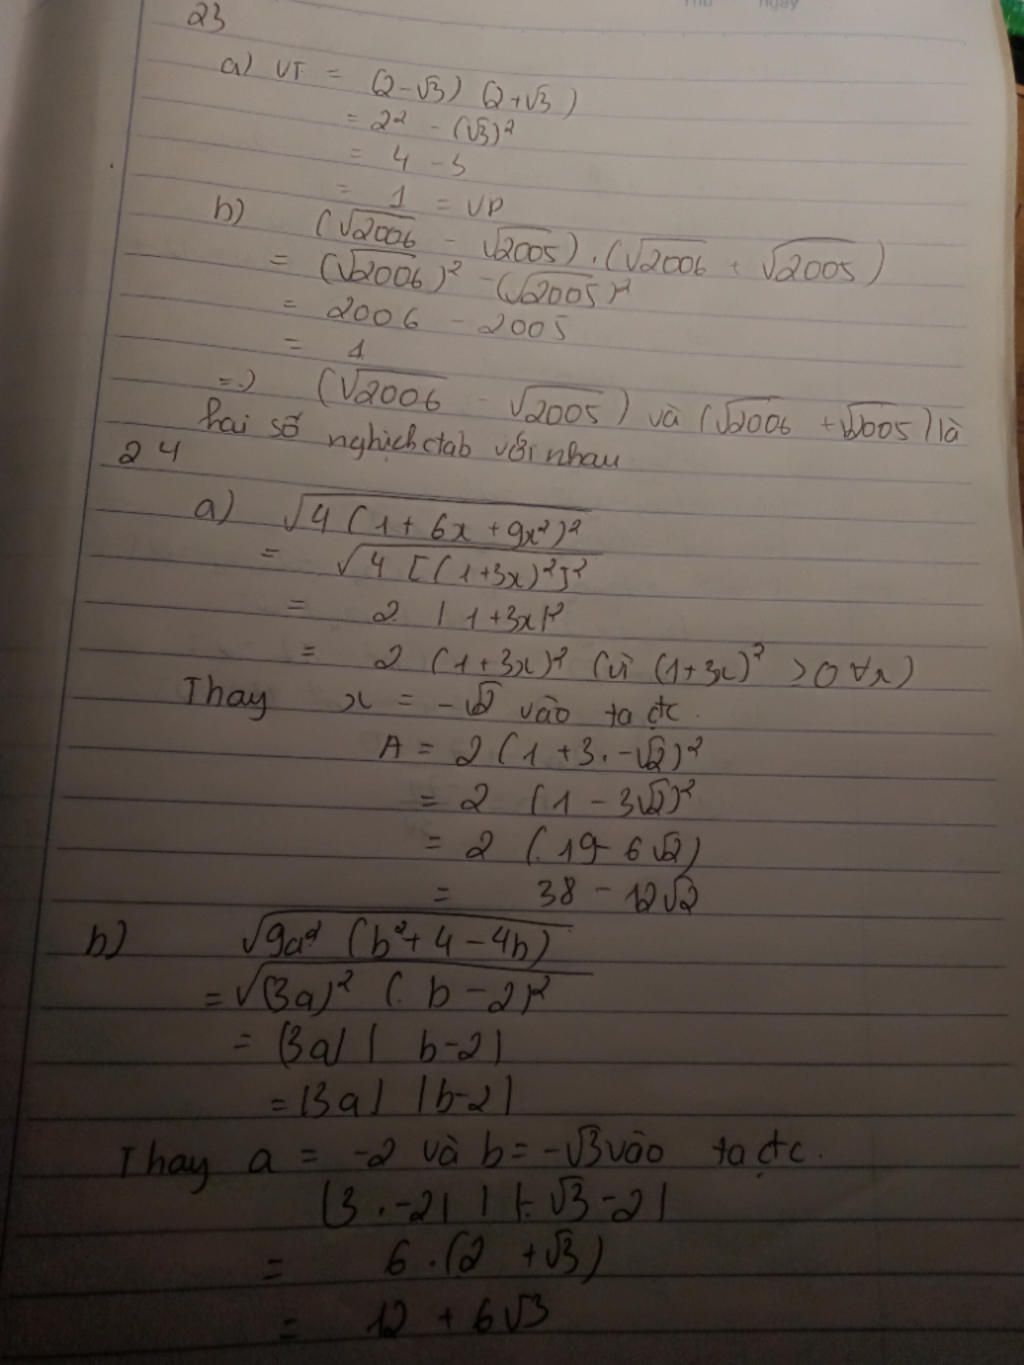 Thứ ngày
23
a) VT = (2-√3) (2+√3)
= 2² - (√3)²
= 4 - 3
= 1 = VP
b) (√2006 - √2005).(√2006 + √2005)
= (√2006)² - (√2005)²
= 2006 - 2005
= 1
=> (√2006 - √2005) và (√2006 + √2005) là
hai số nghịch đảo với nhau
24
a) √4(1+6x+9x²)²
= √4[(1+3x)²]²
= 2 |1+3x|²
= 2 (1+3x)² (vì (1+3x)² >0 ∀x)
Thay x = -√2 vào ta đc.
A = 2(1+3.-√2)²
= 2 (1-3√2)²
= 2 (19-6√2)
= 38 - 12√2
b) √9a² (b²+4-4b)
= √(3a)² (b-2)²
= |3a| |b-2|
= |3a| |b-2|
Thay a = -2 và b = -√3 vào ta đc.
|3.-2| |-√3-2|
= 6.(2+√3)
= 12 + 6√3